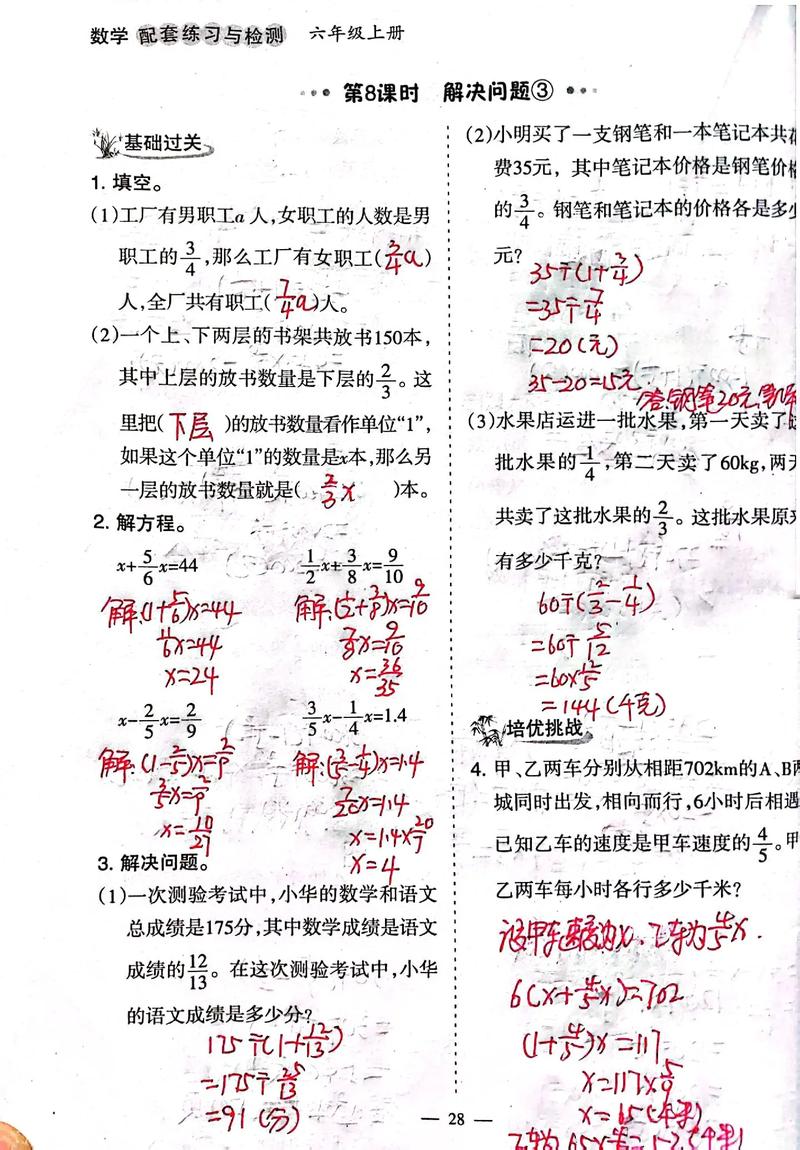 数学 配套练习与检测 六年级上册
第8课时 解决问题③
基础过关
1. 填空。
(1)工厂有男职工a人,女职工的人数是男
职工的3/4,那么工厂有女职工(3/4a)
人,全厂共有职工(7/4a)人。
(2)一个上、下两层的书架共放书150本,
其中上层的放书数量是下层的2/3。这
里把(下层)的放书数量看作单位“1”,
如果这个单位“1”的数量是x本,那么另
一层的放书数量就是(2/3x)本。
2. 解方程。
x+5/6x=44 1/2x+3/8x=9/10
解:(1+5/6)x=44 解:(1/2+3/8)x=9/10
11/6x=44 7/8x=9/10
x=24 x=36/35
x-2/5x=2/9 3/5x-1/4x=1.4
解:(1-2/5)x=2/9 解:(3/5-1/4)x=1.4
3/5x=2/9 7/20x=1.4
x=10/27 x=1.4×20/7
x=4
3. 解决问题。
(1)一次测验考试中,小华的数学和语文
总成绩是175分,其中数学成绩是语文
成绩的12/13。在这次测验考试中,小华
的语文成绩是多少分?
175÷(1+12/13)
=175÷25/13
=91(分)
(2)小明买了一支钢笔和一本笔记本共花
费35元,其中笔记本价格是钢笔价格
的3/4。钢笔和笔记本的价格各是多少
元?
35÷(1+3/4)
=35÷7/4
=20(元)
35-20=15元
答:钢笔20元,
(3)水果店运进一批水果,第一天卖了这
批水果的1/4,第二天卖了60kg,两天
共卖了这批水果的2/3。这批水果原来
有多少千克?
60÷(2/3-1/4)
=60÷5/12
=60×12/5
=144(千克)
培优挑战
4. 甲、乙两车分别从相距702km的A、B两
城同时出发,相向而行,6小时后相遇
已知乙车的速度是甲车速度的4/5。甲
乙两车每小时各行多少千米?
设甲车速度为x,乙车为4/5x.
6(x+4/5x)=702
(1+4/5)x=117
x=117×5/9
x=65(千米)
乙车为65×4/5=52(千米)
28